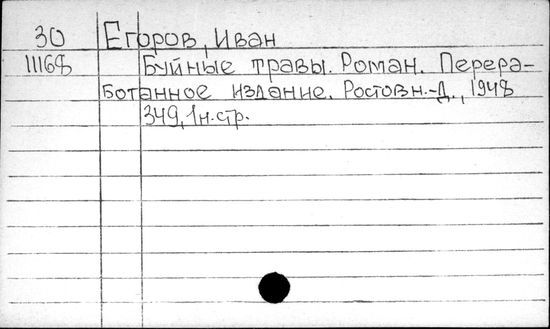 30 Егоров, Иван
11168 Буйные травы. Роман. Перера-
ботанное издание. Ростов н.-Д., 1948
349, 1 н. стр.